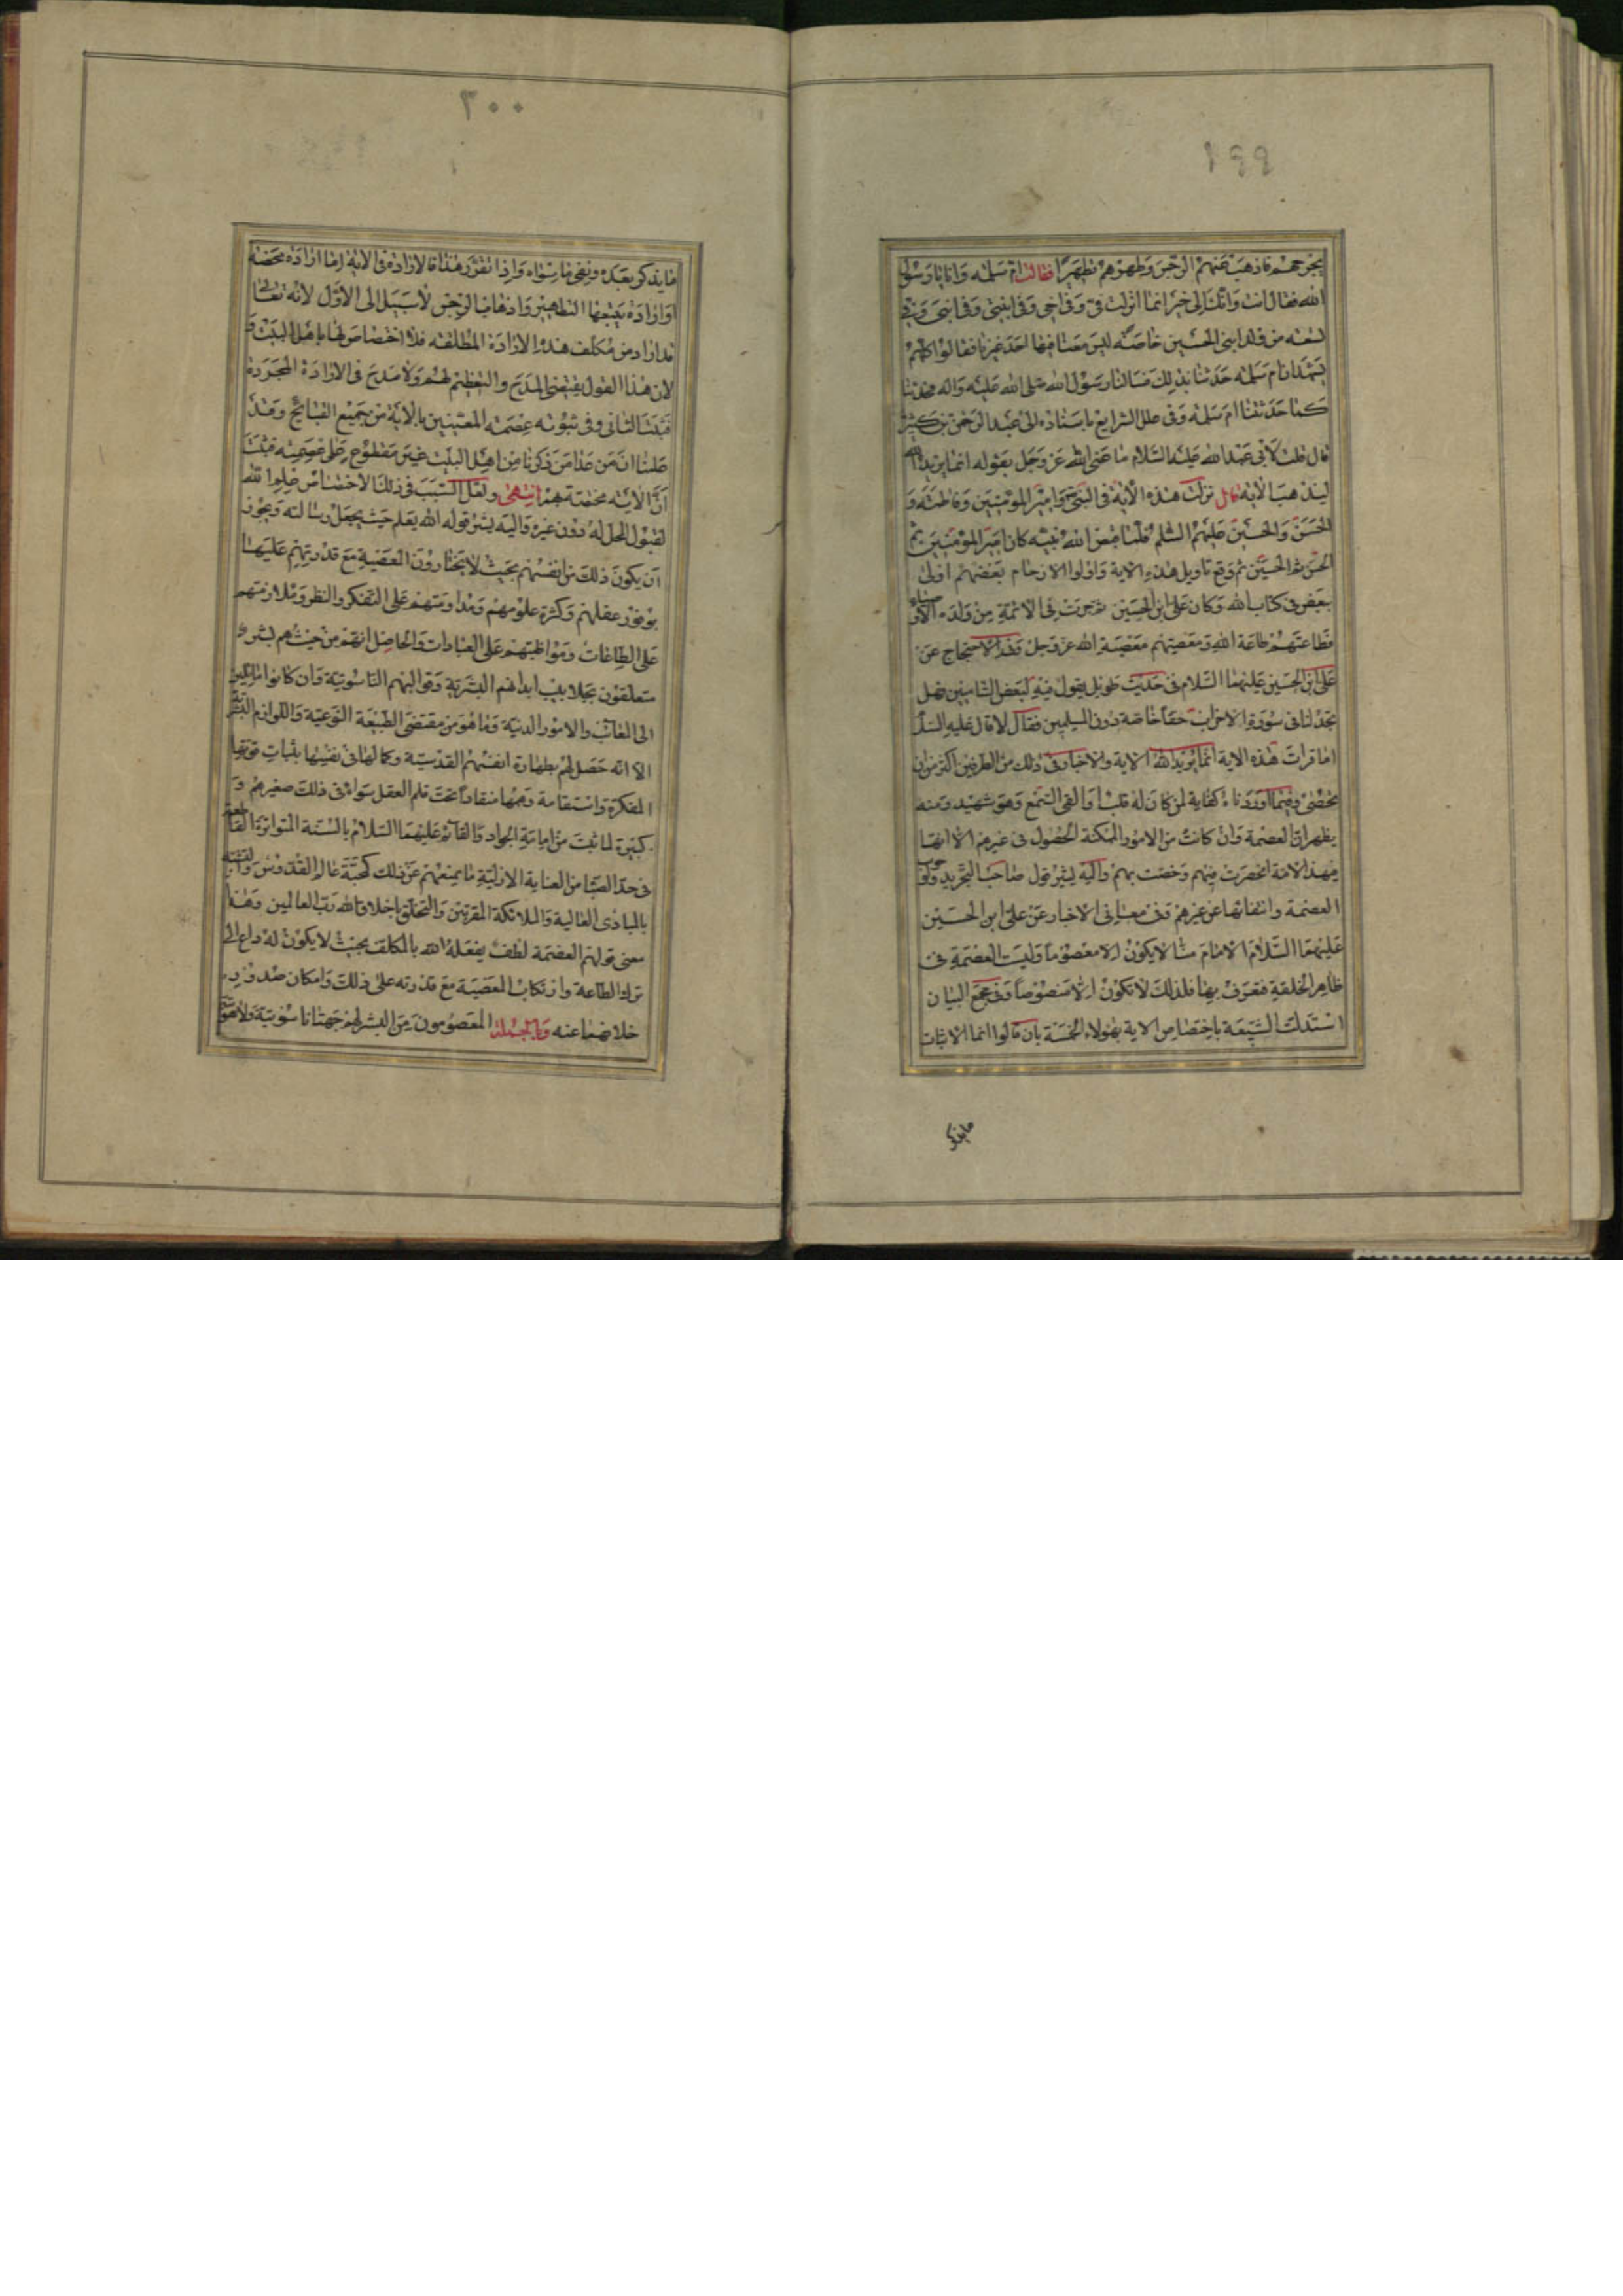 ١٩٩
فاذهب عنهم الرجس وطهرهم تطهيرا فقالت ام سلمه وانا يا رسول
الله فقال انت وانك الى خير انما انزلت في وفي اخي وفي ابنتي وفي ابني وفي
تسعه من ولد ابني الحسين خاصه ليس معنا فيها احد غيرنا فقالوا كلهم
نشهد ان ام سلمه حدثتنا بذلك فسالنا رسول الله صلى الله عليه واله فحدثنا
كما حدثتنا ام سلمه وفي علل الشرايع باسناده الى عبد الرحمن بن كثير
قال قلت لابي عبد الله عليه السلام ما عنى الله عز وجل بقوله انما يريد الله
ليذهب الاية قال نزلت هذه الاية في النبي وامير المومنين وفاطمة و
الحسن والحسين عليهم السلم فلما قبض الله نبيه كان امير المومنين ثم
الحسن ثم الحسين ثم وقع تاويل هذه الاية واولوا الارحام بعضهم اولى
ببعض في كتاب الله وكان علي ابن الحسين ثم جرت في الائمة من ولده الاوصياء
فطاعتهم طاعة الله ومعصيتهم معصية الله عز وجل وفي الاحتجاج عن
علي ابن الحسين عليهما السلام في حديث طويل يقول فيه لبعض الشاميين فهل
تجد لنا في سورة الاحزاب حقا خاصة دون المسلمين فقال لا قال عليه السلام
اما قرات هذه الاية انما يريد الله الاية والاخبار في ذلك من الطرفين اكثر من ان
يحصى وفيما اوردناه كفاية لمن كان له قلب او القى السمع وهو شهيد ومنه
يظهر ان العصمة وان كانت من الامور الممكنة الحصول في غيرهم الا انها
بهذا الامة انحصرت فيهم وخصت بهم واليه يشير قول صاحب التجريد وجوب
العصمة وانتفائها عن غيرهم وفي معاني الاخبار عن علي ابن الحسين
عليهما السلام الامام منا لا يكون الا معصوما وليست العصمة في
ظاهر الخلقة فتعرف بها فلذلك لا تكون الا منصوصا وفي مجمع البيان
استدلت الشيعة باختصاص الاية بهولاء الخمسة بان قالوا انما الاثبات
ما يذكر
٣٠٠
ما يذكر بعده ونفي ما سواه واذا تقرر هذا فالارادة في الاية اما ارادة محضة
او ارادة يتبعها التطهير واذهاب الرجس لا سبيل الى الاول لانه تعالى
قد اراد من مكلف هذه الارادة المطلقه فلا اختصاص لها باهل البيت و
لان هذا القول يقتضي المدح والتعظيم لهم ولا مدح في الارادة المجردة
فثبت الثاني وفي ثبوته عصمة المعنيين بالاية من جميع القبايح وقد
علمنا ان من عدا من ذكرنا من اهل البيت غير مقطوع على عصمته فثبت
ان الاية مختصة بهم انتهى ولعل السبب في ذلك الاختصاص علم الله
لقبول المحل له دون غيره واليه يشير قوله الله يعلم حيث يجعل رسالته ويجوز
ان يكون ذلك من انفسهم بحيث لا يختارون المعصية مع قدرتهم عليها
بوفور عقلهم وكثرة علومهم ومداومتهم على التفكر والنظر وملازمتهم
على الطاعات ومواظبتهم على العبادات والحاصل انهم من حيث هم بشر
متعلقون بجلابيب ابدانهم البشرية وقوالبهم الناسوتية وان كانوا مايلين
الى المعائب والامور الدنية وما هو من مقتضى الطبيعة النوعية واللوازم البشرية
الا انه حصل لهم بطهارة انفسهم القدسية وكمالها في نفسها بثبات قوتها
المفكرة واستقامة وهمها منقادا تحت قلم العقل سواء في ذلك صغيرهم و
كبيرة لما ثبت من امامة الجواد والقائم عليهما السلام بالسنة المتواترة القاطعة
في حد الصبا من العناية الازلية ما يمنعهم عن ذلك كمحبة عالم القدوس
بالمبادي العالية والملائكة المقربين والتخلق باخلاق الله رب العالمين وهذا
معنى قولهم العصمة لطف يفعله الله بالمكلف بحيث لا يكون له داع الى
ترك الطاعة وارتكاب المعصية مع قدرته على ذلك وامكان صدور
خلافهما عنه وبالجملة المعصومون من البشر لهم جهتان ناسوتية ولاهوتية